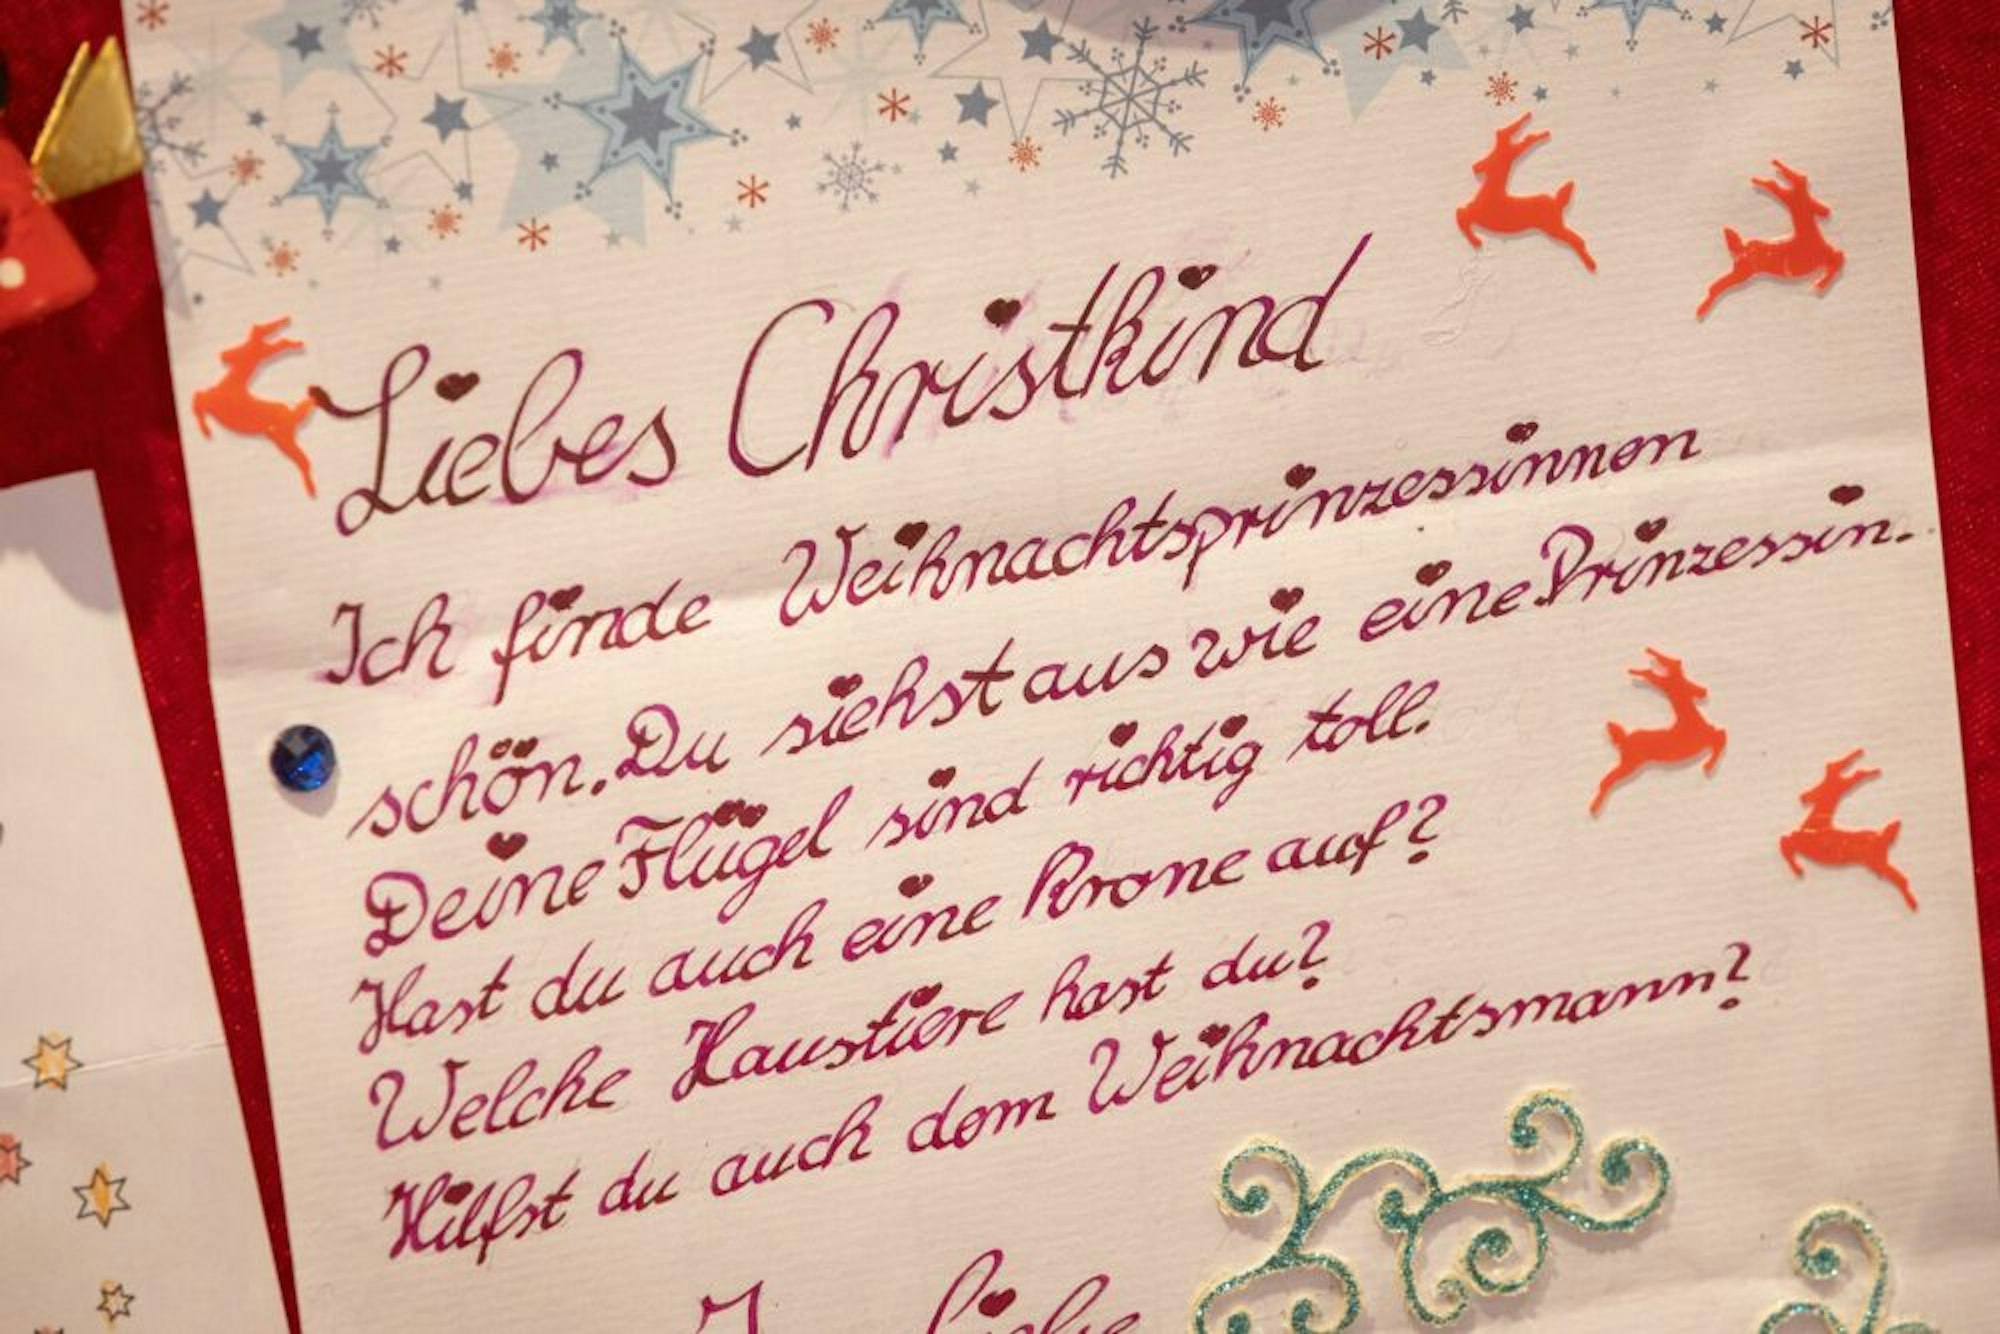 Liebes Christkind
Ich finde Weihnachtsprinzessinnen
schön. Du siehst aus wie eine Prinzessin.
Deine Flügel sind richtig toll.
Hast du auch eine Krone auf?
Welche Haustiere hast du?
Hilfst du auch dem Weihnachtsmann?